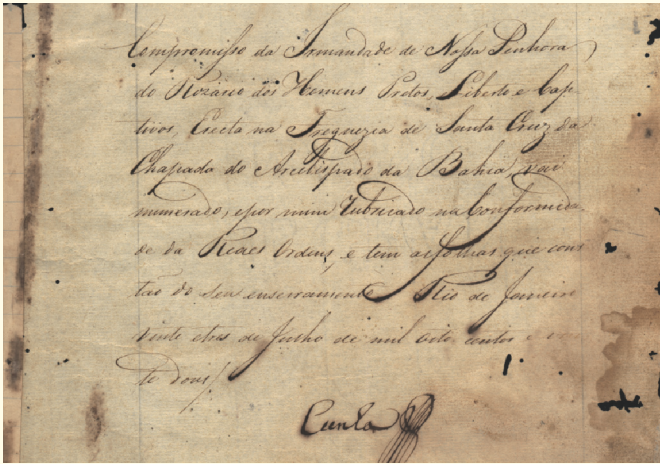 Compromisso da Irmandade de Nossa Senhora
do Rozario dos Homens Pretos, Liberto e Cap
tivos, Erecta na Freguezia de Santa Cruz da
Chapada do Arcebispado da Bahia, vai
numerado, e por mim Rubricado na Conformida
de da Reaes Ordens, e tem as folhas que cons
tão do seu enserramento Rio de Janeiro
vinte e tres de Julho de mil oito centos e
te dous/
Cunha